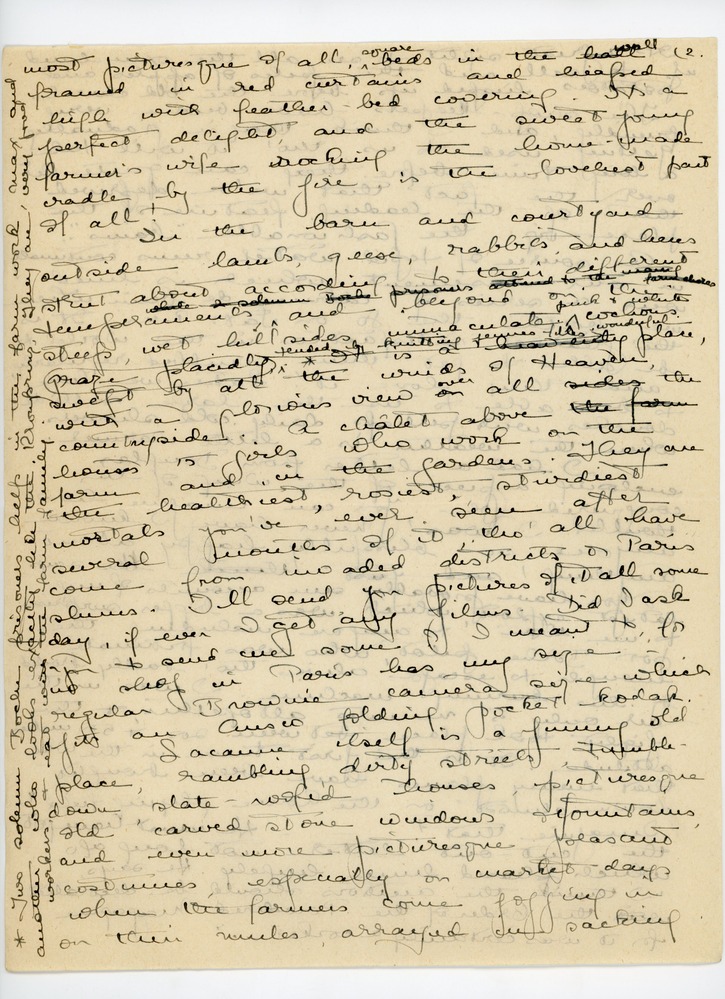 (2.
most picturesque of all, square beds in the hall wall
framed in red curtains and heaped
high with feather-bed covering. It's a
perfect delight, and the sweet young
farmer's wife rocking the home-made
cradle by the fire is the loveliest part
of all!
In the barn and courtyard
outside lambs, geese, rabbits and hens
strut about according to their different
temperaments and beyond on the
while 2 solemn Boche prisoners attend to the many farm chores
steep, wet hillsides immaculate pink & white cochons
graze placidly, tended by knitting femmes. * It is a wonderful place,
swept by all the winds of Heaven,
with a glorious view over on all sides the
countryside. A châlet above the farm
houses 15 girls who work on the
farm and in the gardens. They are
the healthiest, rosiest, sturdiest
mortals you've ever seen after
several months of it, tho' all have
come from invaded districts or Paris
slums. I'll send you pictures of it all some
day, if ever I get any films. Did I ask
you to send me some? I meant to, for
no shop in Paris has my size –
regular Brownie camera size which
fits an Ansco folding pocket kodak.
Lacaune itself is a funny old
place, rambling dirty streets, tumble-
down slate-roofed houses, picturesque
old carved stone windows & fountains,
and even more picturesque peasant
costumes, especially on market-days
when the farmers come jogging in
on their mules, arrayed in sacking
* Two solemn Boche prisoners help in the farm work, Max and
another who looks exactly like the Kronprinz. They are very good
workers & eat with the farm family.